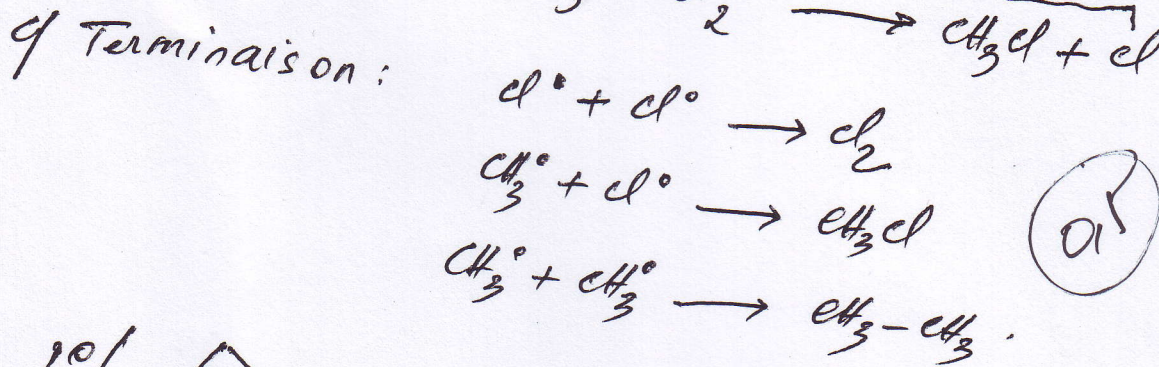 2 → CH₃Cl + Cl
c/ Terminaison :
Cl° + Cl° → Cl₂
CH₃° + Cl° → CH₃Cl
CH₃° + CH₃° → CH₃-CH₃.